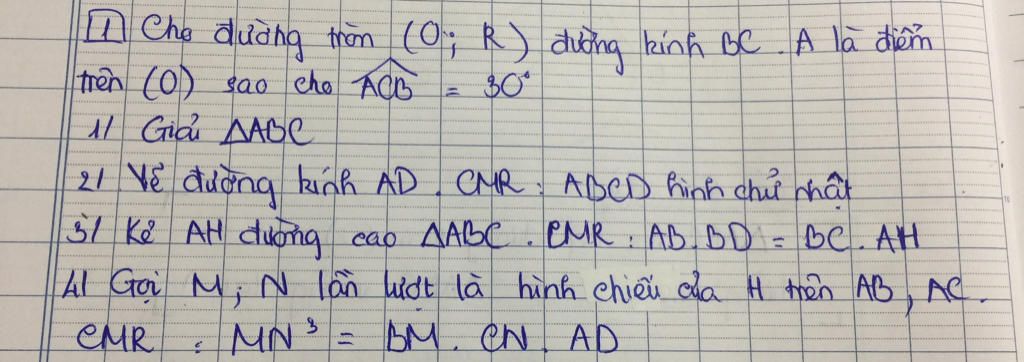 1 Cho đường tròn (O; R) đường kính BC. A là điểm
trên (O) sao cho ACB = 30°
1/ Giải ΔABC
2/ Vẽ đường kính AD. CMR: ABCD hình chữ nhật
3/ Kẻ AH đường cao ΔABC. CMR: AB.BD = BC.AH
4/ Gọi M; N lần lượt là hình chiếu của H trên AB, AC.
CMR: MN³ = BM. CN. AD